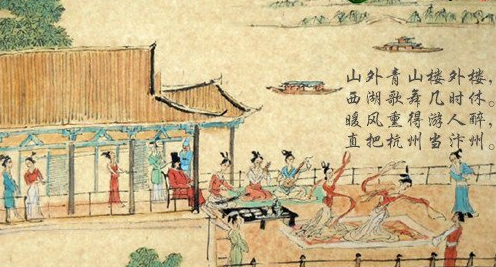 山外青山楼外楼，
西湖歌舞几时休。
暖风熏得游人醉，
直把杭州当汴州。